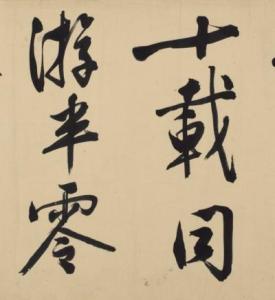 十載同
游半零